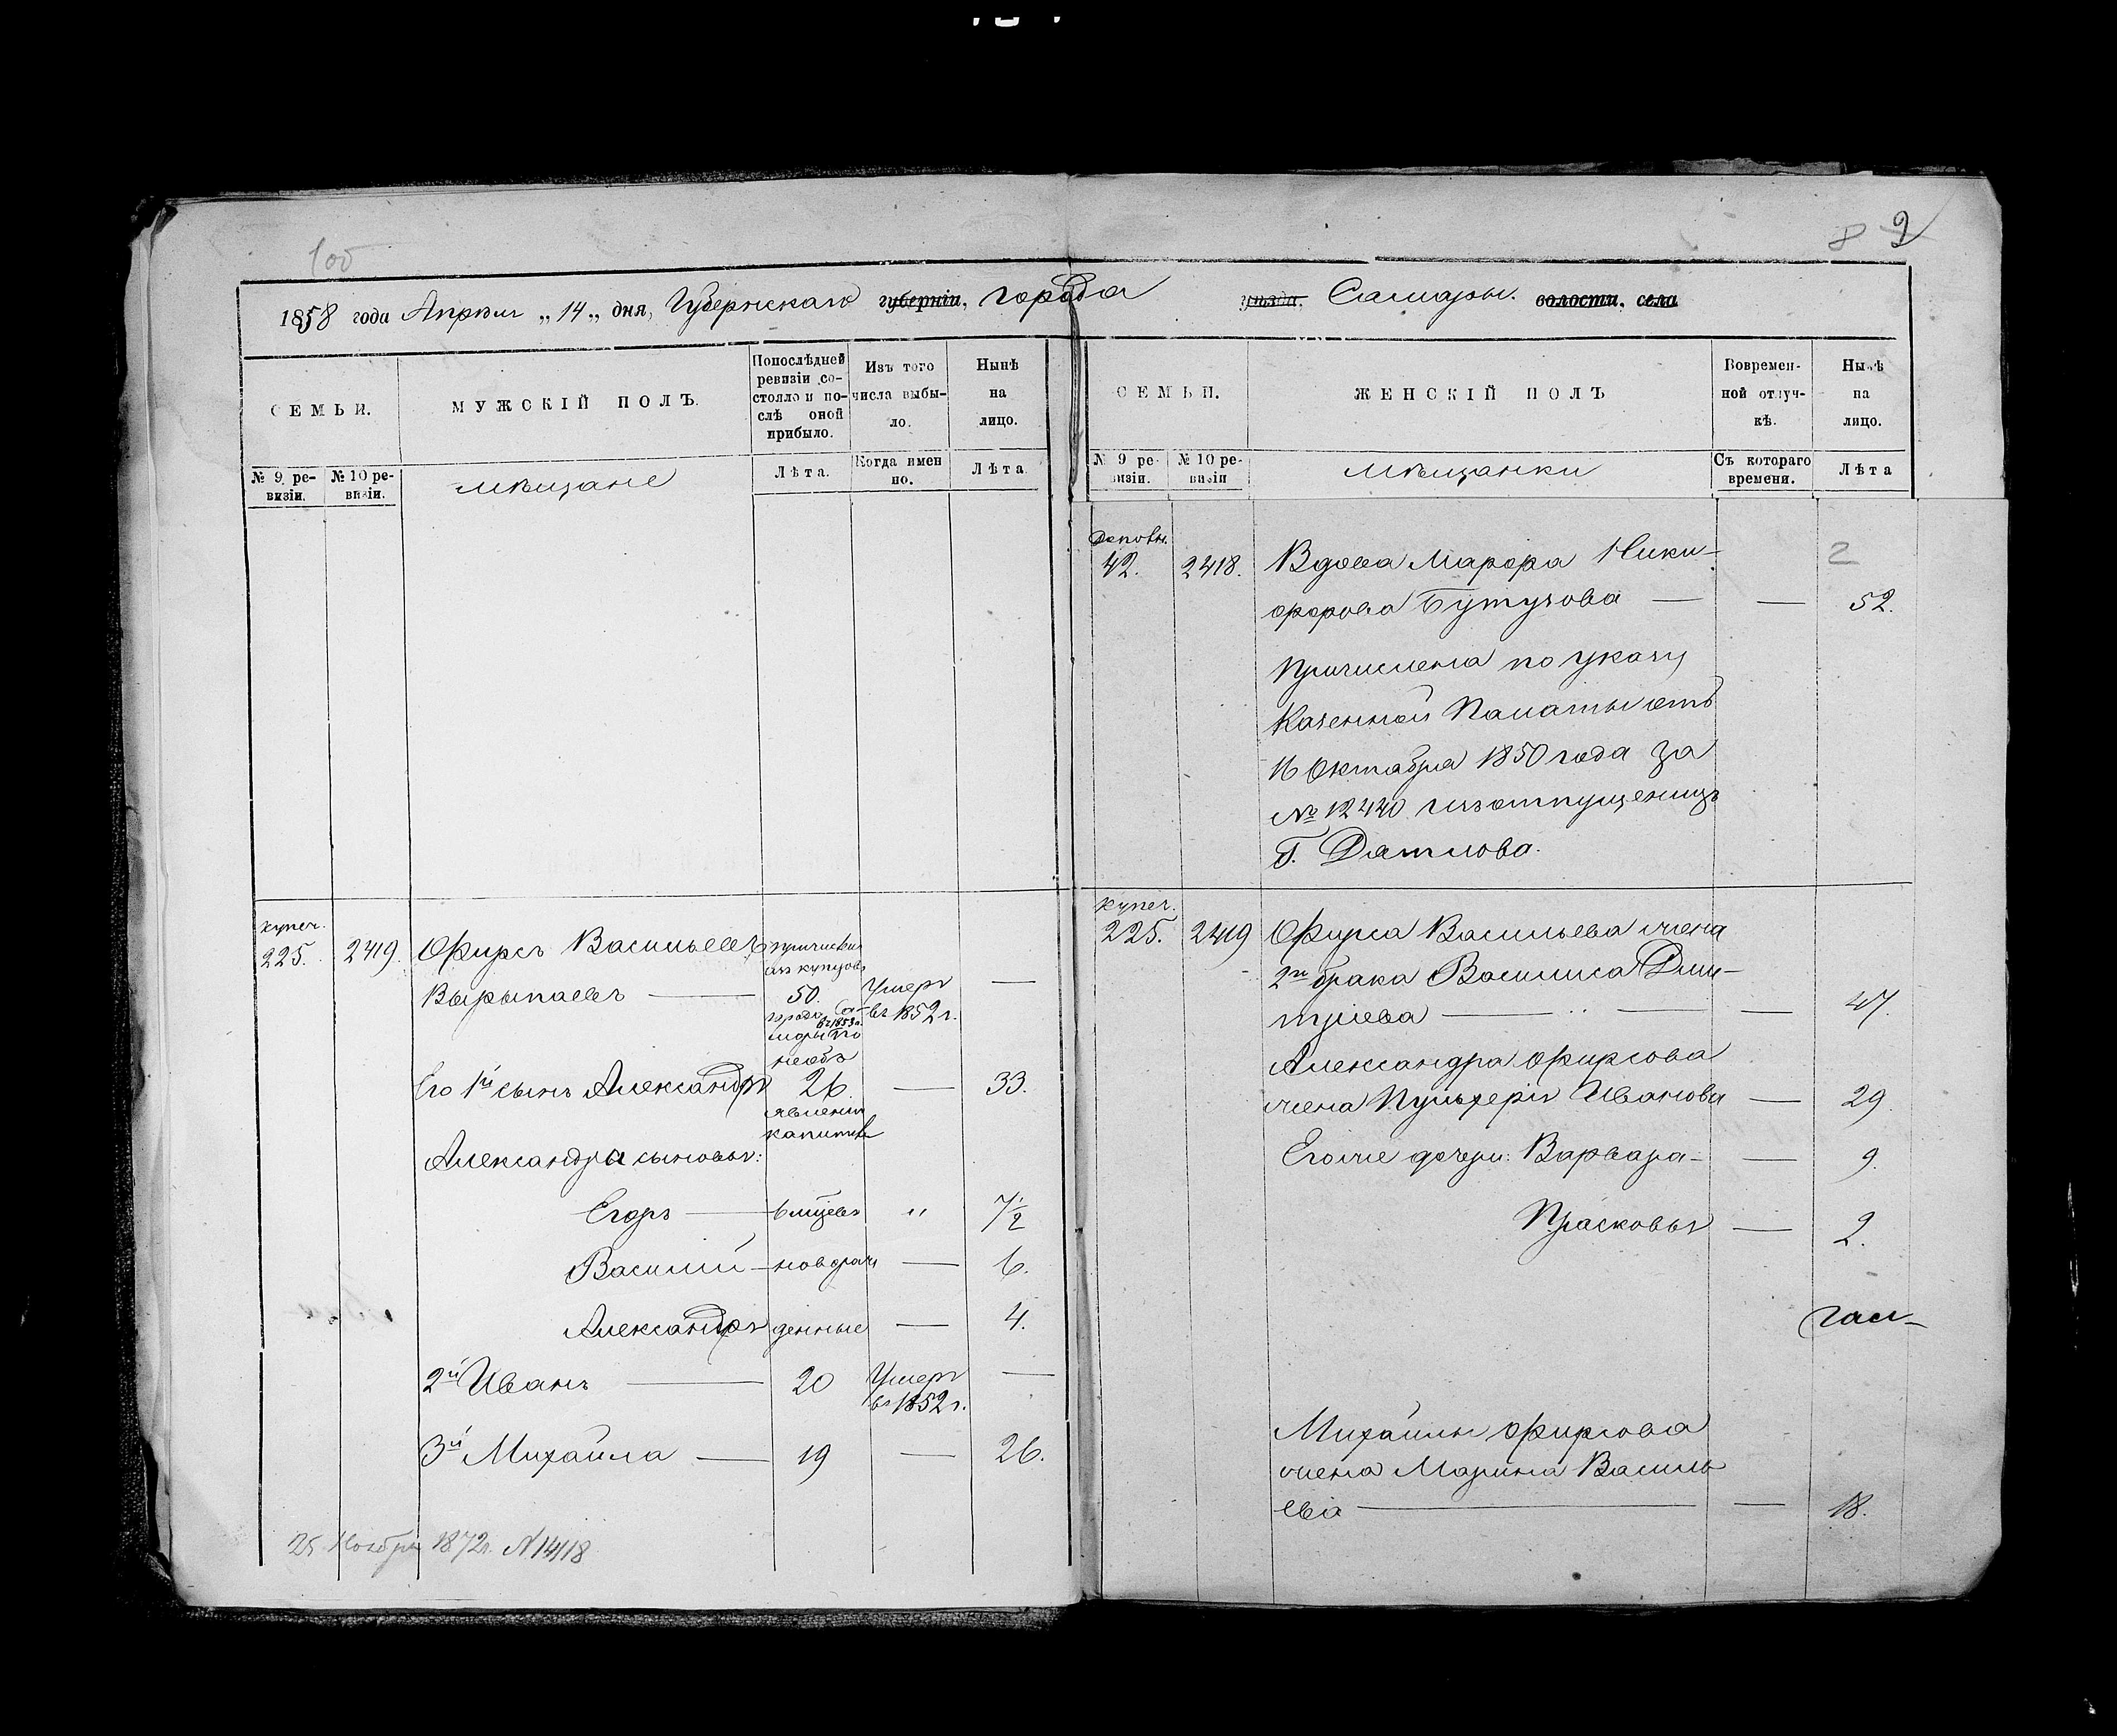 100
8 9
1858 года Апрѣля „14„ дня, Губернскаго губерніи, города уѣзда, Самары. волости, села
СЕМЬИ.
МУЖСКІЙ ПОЛЪ.
Попослѣдней
ревизіи со-
стояло и по-
слѣ оной
прибыло.
Изъ того
числа выбы-
ло.
Нынѣ
на
лицо.
№ 9 ре-
визіи.
№ 10 ре-
визіи.
мѣщане
Лѣта.
Когда имен
но.
Лѣта
купеч.
225.
2419.
Фирсъ Васильевъ
Вырыпаевъ
причислен
изъ купцовъ
50.
города Са-
въ 1853 г.
мары по
необъ
Умеръ
въ 1852 г.
Его 1й сынъ Александръ 26 — 33.
явленію
капитала
Александра сыновья:
Егоръ — 6 мѣщевъ „ 7½
Василій — новорож — 6.
Александръ денные — 4.
2й Иванъ — 20 Умеръ —
въ 1852 г.
3й Михайла — 19 — 26.
25 Ноября 1872 г. N 14118
СЕМЬИ.
ЖЕНСКІЙ ПОЛЪ
Вовремен-
ной отлуч-
кѣ.
Нынѣ
на
лицо.
№ 9 ре-
визіи.
№ 10 ре-
визіи
мѣщанки
Съ котораго
времени.
Лѣта
42. 2418. Вдова Марфа Ники- 2
форова Бутузова — — 52.
Причислена по указу
Казенной Палаты отъ
16 Октября 1850 года за
№ 12440 изъ отпущеницъ
Г. Датлова.
купеч.
225. 2419 Фирса Васильева жена
2го брака Василиса Дми-
тріева — — 47.
Александра Фирсова
жена Пульхерія Иванова — 29
Егоже дочери: Варвара — — 9.
Прасковья — 2.
Михайлы Фирсова
жена Марина Василь
ева — — 18.